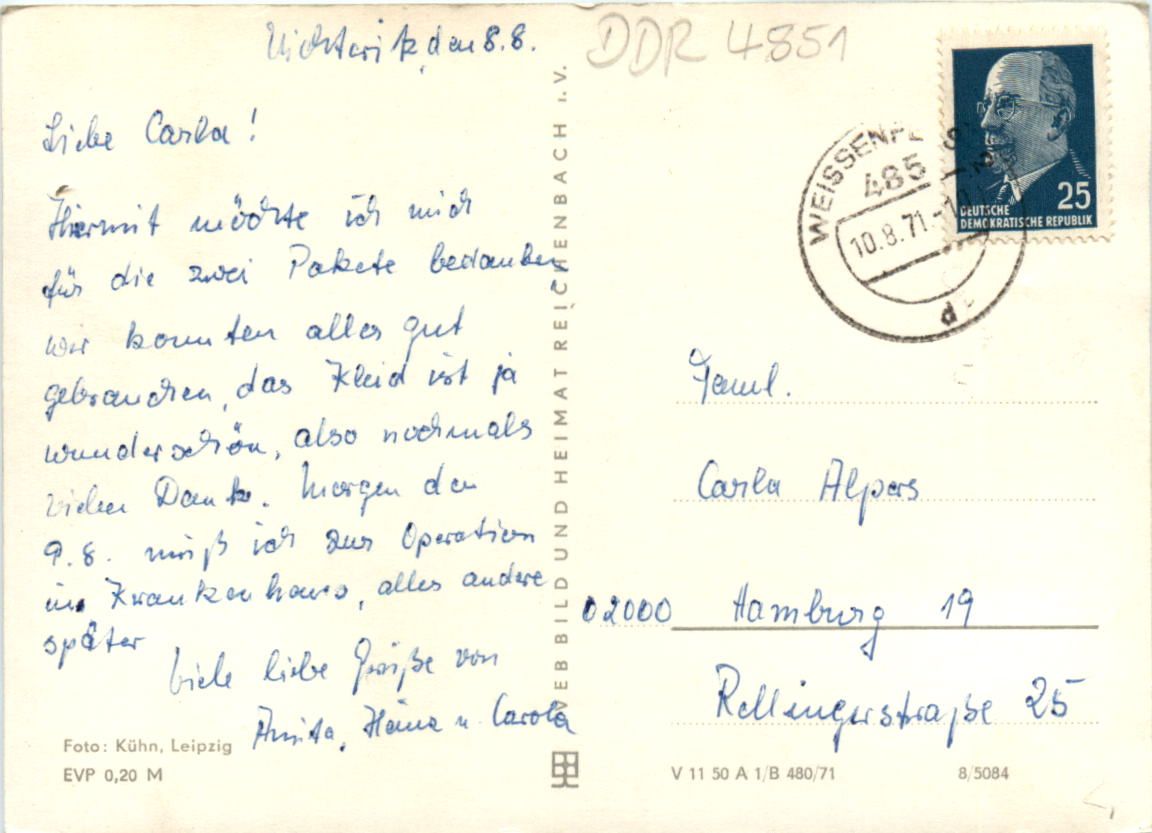 Uichteritz, den 8.8.
Liebe Carla!
Hiermit möchte ich mich
für die zwei Pakete bedanken,
wir konnten alles gut
gebrauchen, das Kleid ist ja
wunderschön, also nochmals
vielen Dank. Morgen den
9.8. muß ich zur Operation
ins Krankenhaus, alles andere
später
Viele liebe Grüße von
Anita, Heinz u. Carola
Foto: Kühn, Leipzig
EVP 0,20 M
VEB BILD UND HEIMAT REICHENBACH I. V.
DDR 4851
WEISSENFELS
485
10.8.71
d
25
DEUTSCHE
DEMOKRATISCHE REPUBLIK
Faml.
Carla Alpers
02000 Hamburg 19
Rellingerstraße 25
V 11 50 A 1/B 480/71 8/5084